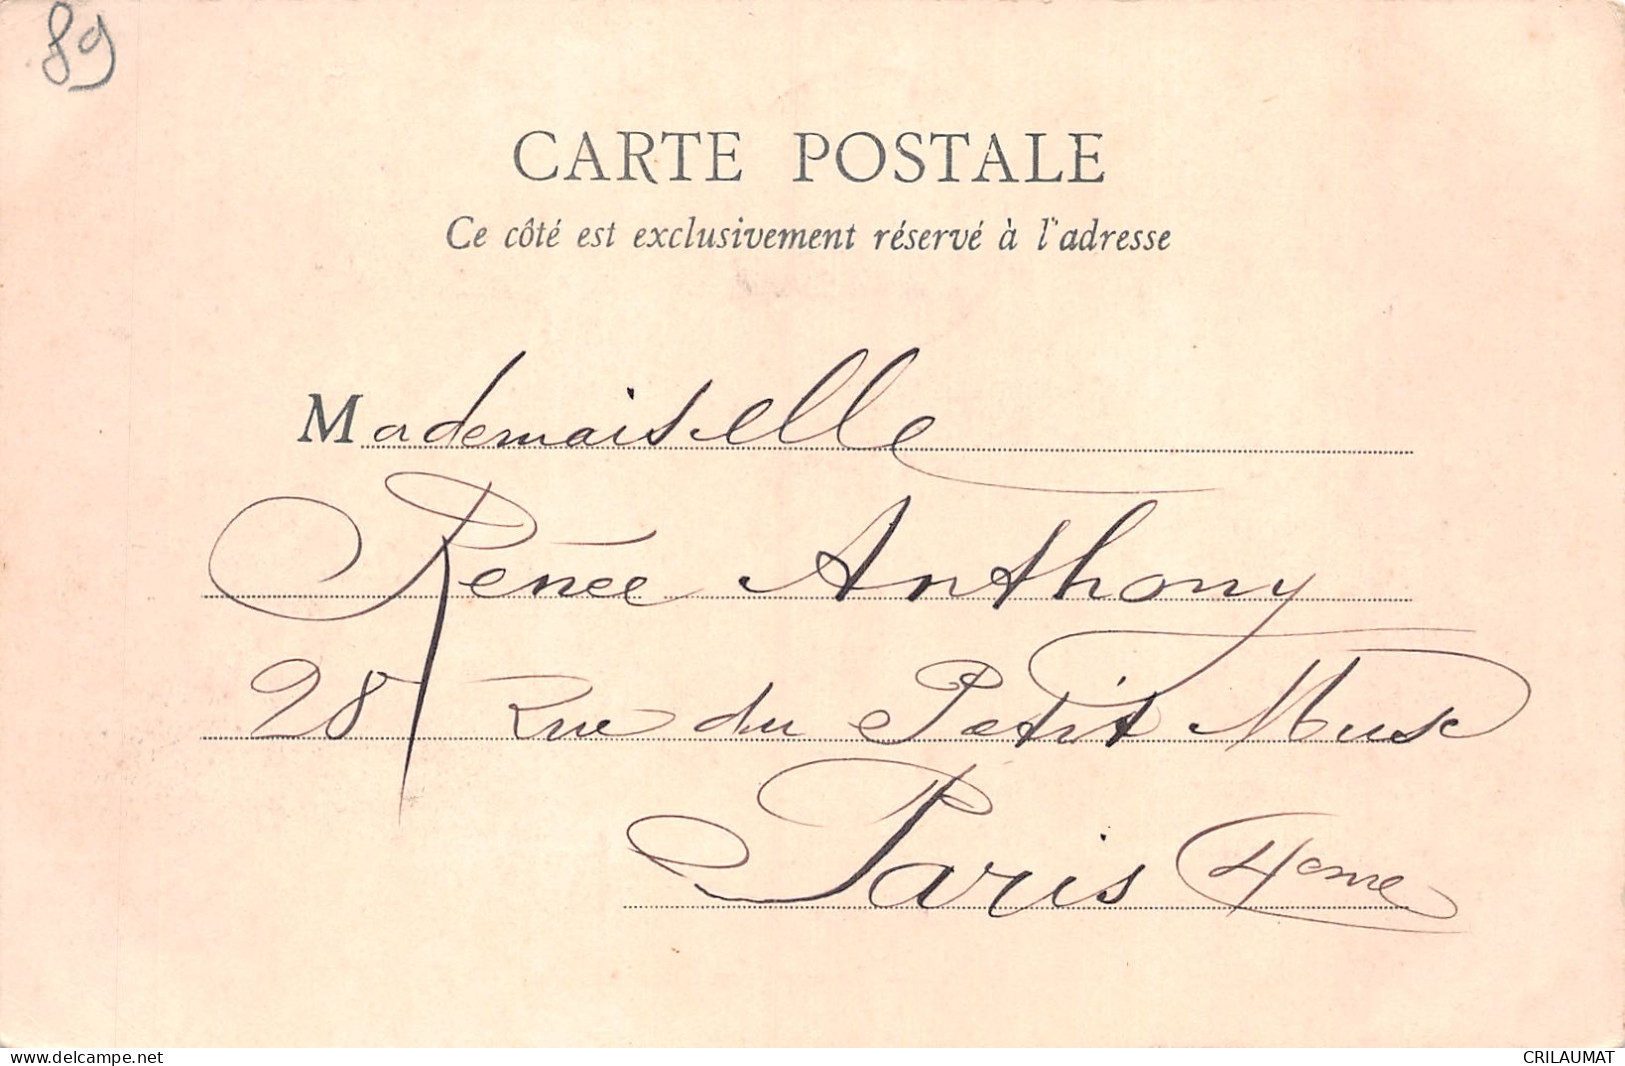 89
CARTE POSTALE
Ce côté est exclusivement réservé à l'adresse
Mademoiselle
Renée Anthony
28 Rue du Petit Musc
Paris (4eme)
www.delcampe.net
CRILAUMAT